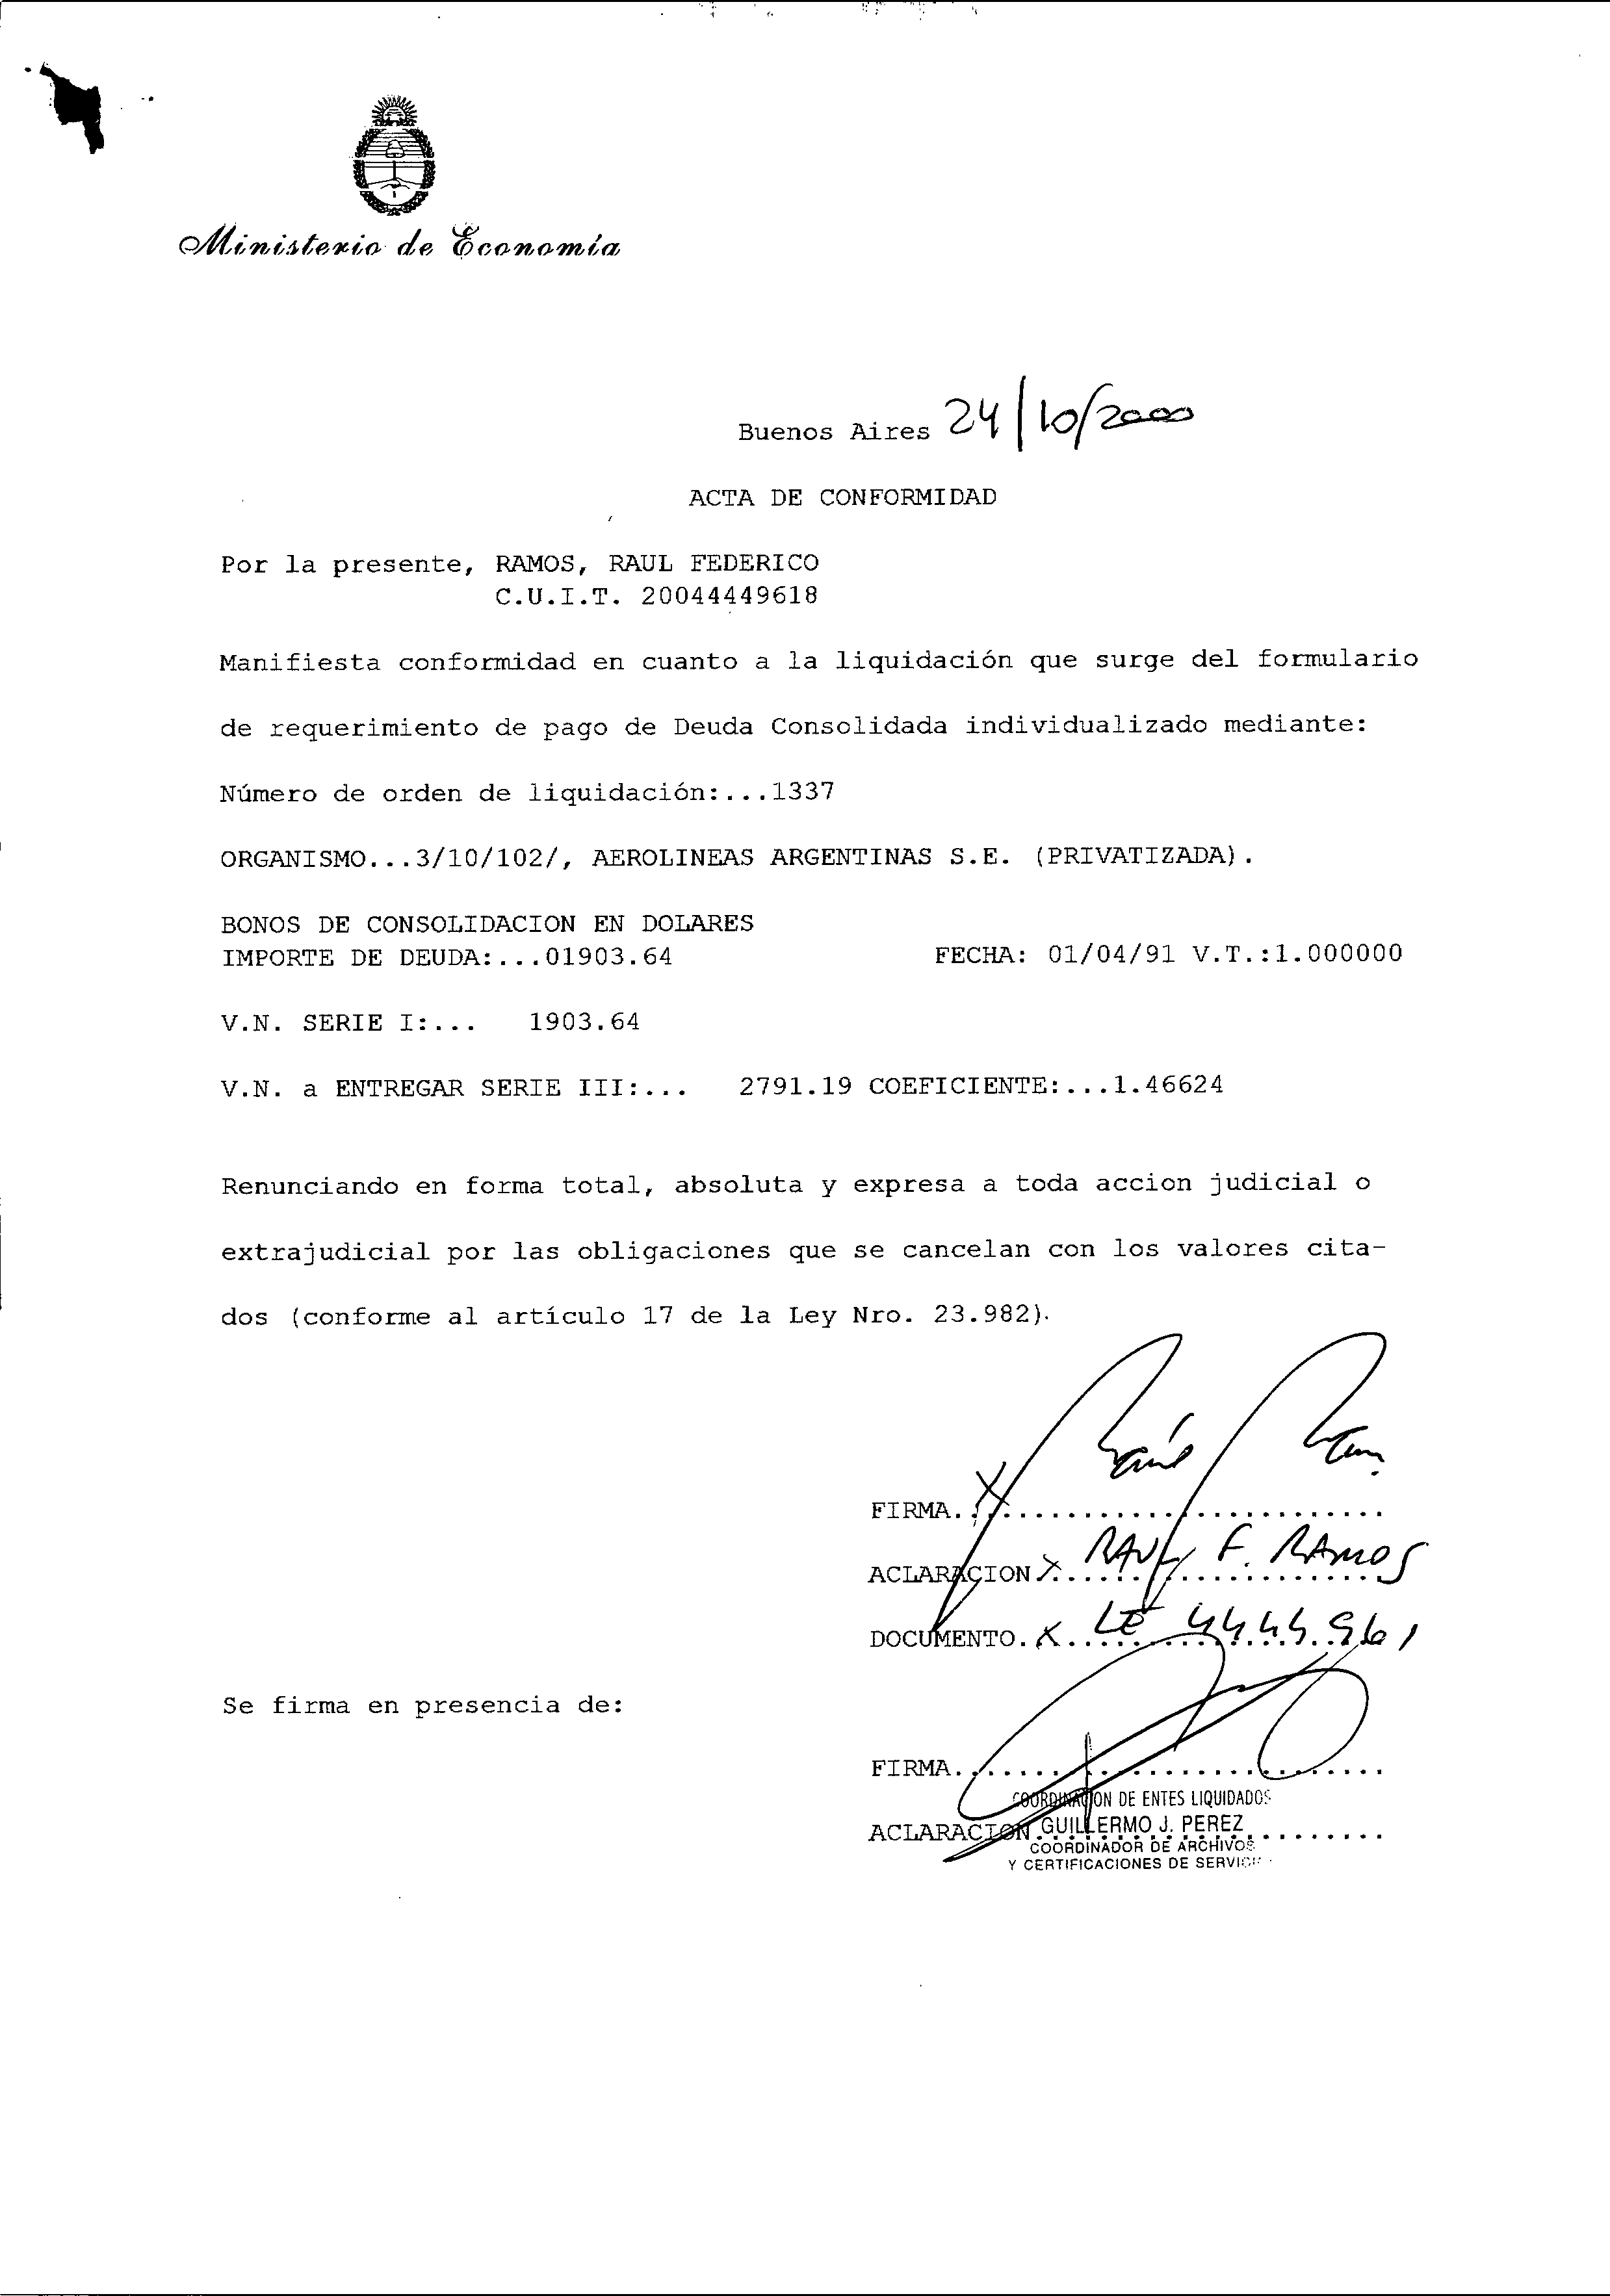 Ministerio de Economía
Buenos Aires 24/10/2000
ACTA DE CONFORMIDAD
Por la presente, RAMOS, RAUL FEDERICO
C.U.I.T. 20044449618
Manifiesta conformidad en cuanto a la liquidación que surge del formulario
de requerimiento de pago de Deuda Consolidada individualizado mediante:
Número de orden de liquidación:...1337
ORGANISMO...3/10/102/, AEROLINEAS ARGENTINAS S.E. (PRIVATIZADA).
BONOS DE CONSOLIDACION EN DOLARES
IMPORTE DE DEUDA:...01903.64 FECHA: 01/04/91 V.T.:1.000000
V.N. SERIE I:... 1903.64
V.N. a ENTREGAR SERIE III:... 2791.19 COEFICIENTE:...1.46624
Renunciando en forma total, absoluta y expresa a toda accion judicial o
extrajudicial por las obligaciones que se cancelan con los valores cita-
dos (conforme al artículo 17 de la Ley Nro. 23.982).
FIRMA. X
ACLARACION X RAUL F. RAMOS
DOCUMENTO. X LE 4444961
Se firma en presencia de:
FIRMA.
COORDINACION DE ENTES LIQUIDADOS
ACLARACION GUILLERMO J. PEREZ
COORDINADOR DE ARCHIVOS
Y CERTIFICACIONES DE SERVICIO